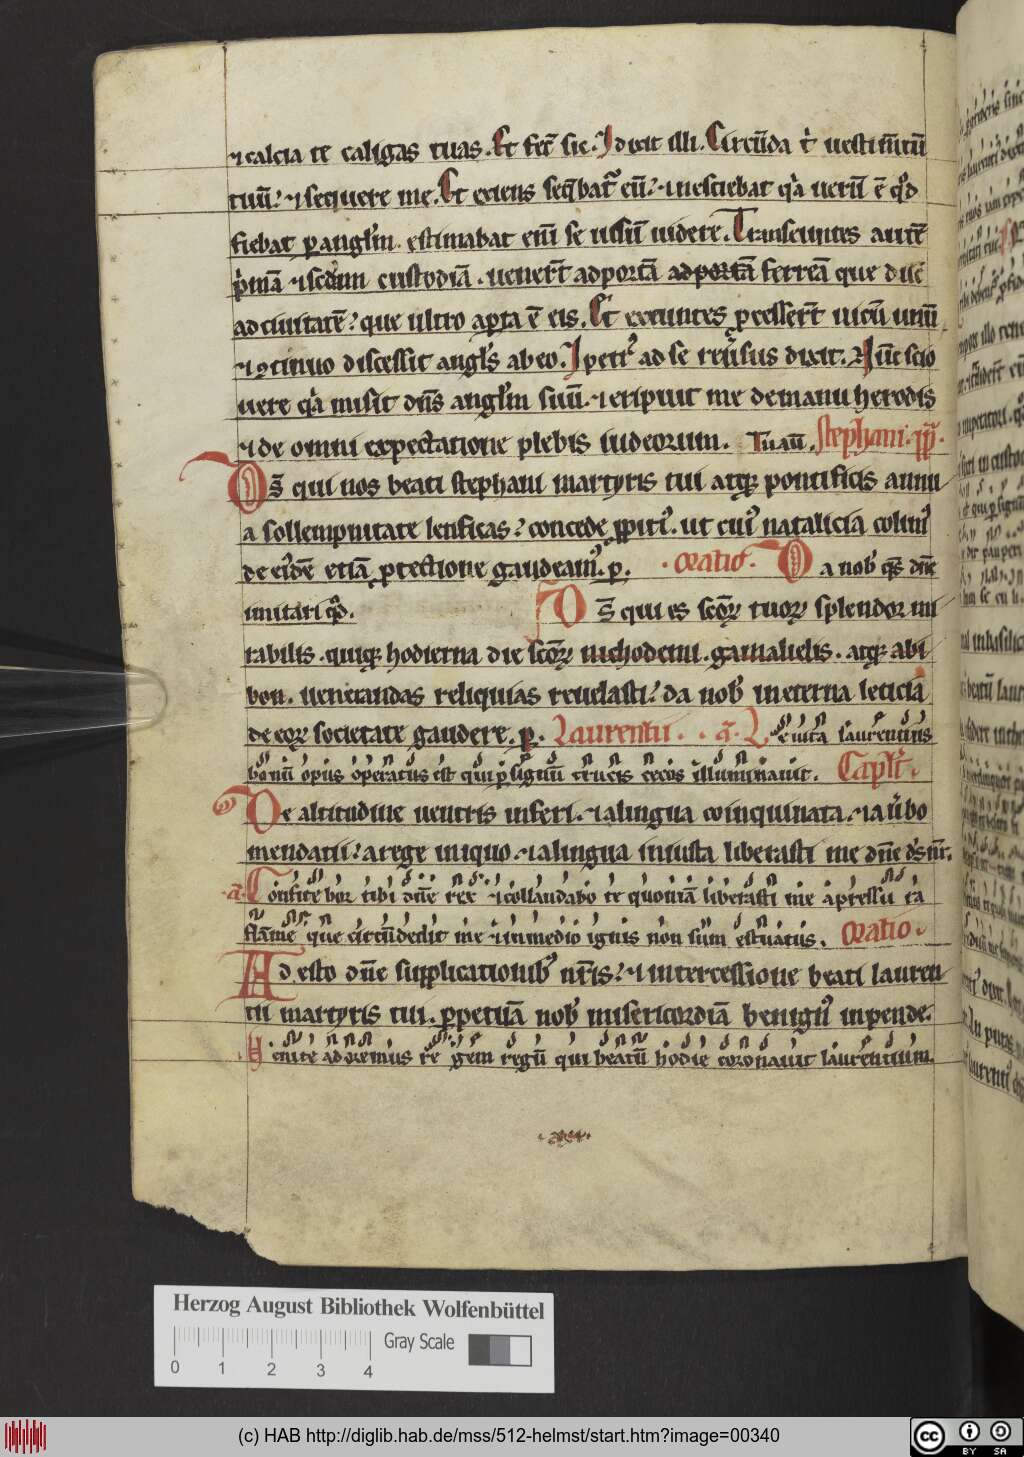 ⁊ calcia te caligas tuas. Et fec̄ sic. I dixit illi. Circūda t̾ uestim̄tū
tuū. ⁊ seq̇uere me. Et exiens seq̄bat᷑ eū. ⁊ nesciebat q̇a uerū ē qd̾
fiebat ꝑ angłm. estimabat enī se uisū uidere. Transeuntes autē
ṗmā ⁊ scdam custodiā. uener̄t ad portā ad portā ferreā que duc̄
ad ciuitatē. que ultro aꝑta ē eis. Et exeuntes ꝓcesser̄t uicū unū
⁊ ꝯtinuo discessit angłs ab eo. I petr᷒ ad se reu̾sus dixit. Nūc scio
uere q̇a misit dn̄s angłm suū. ⁊ eripuit me de manu herodis
⁊ de omni expectatione plebis iudeorum. Tu aū. Stephani. pp̄.
DS̄ qui nos beati stephani martyris tui atqꝫ pontificis annu
a sollempnitate letificas. concede ꝓpiti᷒. ut cui᷒ natalicia colim᷒
de ei᷒dē etiā ꝓtectione gaudeam᷒. ꝑ. oratio. Da nob̾ qs̄ dn̄e
imitari qd̾.
DS̄ qui es scōꝝ tuoꝝ splendor mi
rabilis. quiqꝫ hodierna die scōꝝ nichodemi. gamalielis. atqꝫ abi
bon. uenerandas reliquias reuelasti. da nob̾ in eterna leticiā
de eoꝝ societate gaudere. ꝑ. Laurentii. a. Leuita laurentius
bonū opus operatus est qui ꝑ signū crucis cecos illuminauit. Capłm.
De altitudine uentris inferi. ⁊ a lingua coinquinata. ⁊ a u̾bo
mendatii. a rege iniquo. ⁊ a lingua iniusta liberasti me dn̄e ds̄ nr̄.
a. Confitebor tibi dn̄e rex ⁊ collaudabo te quoniā liberasti me a pressu ra
flāme que circūdedit me ⁊ in medio ignis non sum estuatus. Oratio.
Ad esto dn̄e supplicationib᷒ nr̄is. ⁊ intercessione beati lauren
tii martyris tui. ꝑpetuā nob̾ misericordiā benign᷒ inpende.
Venite adoremus re gem regū qui beatū hodie coronauit laurentium.
Herzog August Bibliothek Wolfenbüttel
Gray Scale
0 1 2 3 4
(c) HAB http://diglib.hab.de/mss/512-helmst/start.htm?image=00340
cc BY SA